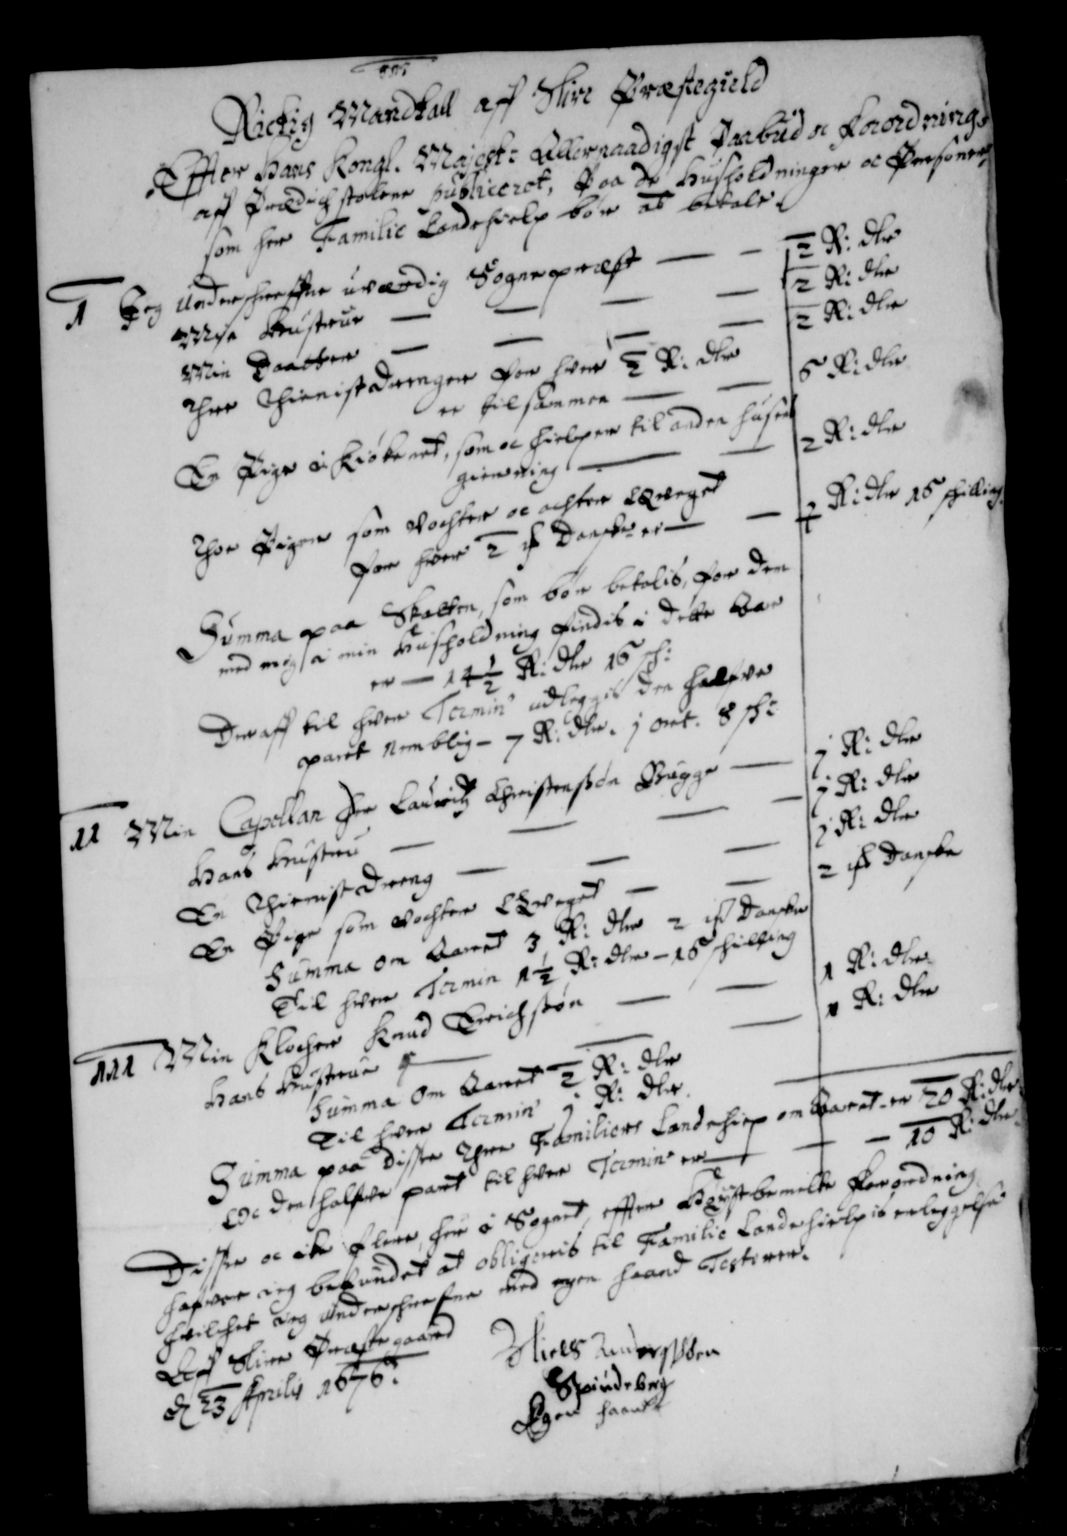 Richtig Mandtall aff Slire Præstegield
Effter Hans Kongl. Majest: Allernaadigst Paabud oc Forordning
aff Prædichstolene publiceret, Paa de Husholdninger oc Personer,
som her Familie Landehielp bør at betale.
1 Jeg Underschreffne uværdig Sogneprest — — 2 R: dlr
Min Hustrue — — — — 2 R: dlr
Min Daatter — — — — 2 R: dlr
Thre Thienist Drenger for hver 2 R: dlr
er tilsammen — — 6 R: dlr
En Pige i Kiøkenet, som oc hielper til anden huses
gierning — — 2 R: dlr
Thoe Piger som vochter oc achter Qveget
for hver 2 Danske er — — R: dlr 16 schilling
Summa paa Skatten, som bør betalis, for dem
med mig i min Husholdning findis i dette Aar
er — 14 1/2 R: dlr 16 sch:
Deraff til hver Termin udleggis den halfve
part Nemblig — 7 R: dlr. j ort. 8 sch:
11 Min Capellan Her Lauritz Christensøn Bugge — j R: dlr
Hans Hustru — — — — j R: dlr
En Thienist Dreng — — — j R: dlr
En Pige som vochter Qveget — — 2 Danske
Summa om Aaret 3 R: dlr 2 Danske
Til hver Termin 1 1/2 R: dlr — 16 schilling
111 Min Klocher Knud Erichsøn — — 1 R: dlr
Hans Hustrue — — — 1 R: dlr
Summa om Aaret 2 R: dlr
Til hver Termin j R: dlr.
Summa paa disse Thre Familiers Landehielp om Aaret er 20 R: dlr
Oc den halfve part til hver Termin er — — 10 R: dlr
Disse oc ike flere, her i Sognet, effter Høystbemelte Forordning
hafver ieg befundet at obligeris til Familie Landehielpis erleggelse
hvilchet ieg Underschrefne med egen haand Testerer.
Aff Slire Præstegaard
d 23 Aprilis 1676.
Niels Anderssøn
Spindeberg
Egen haand